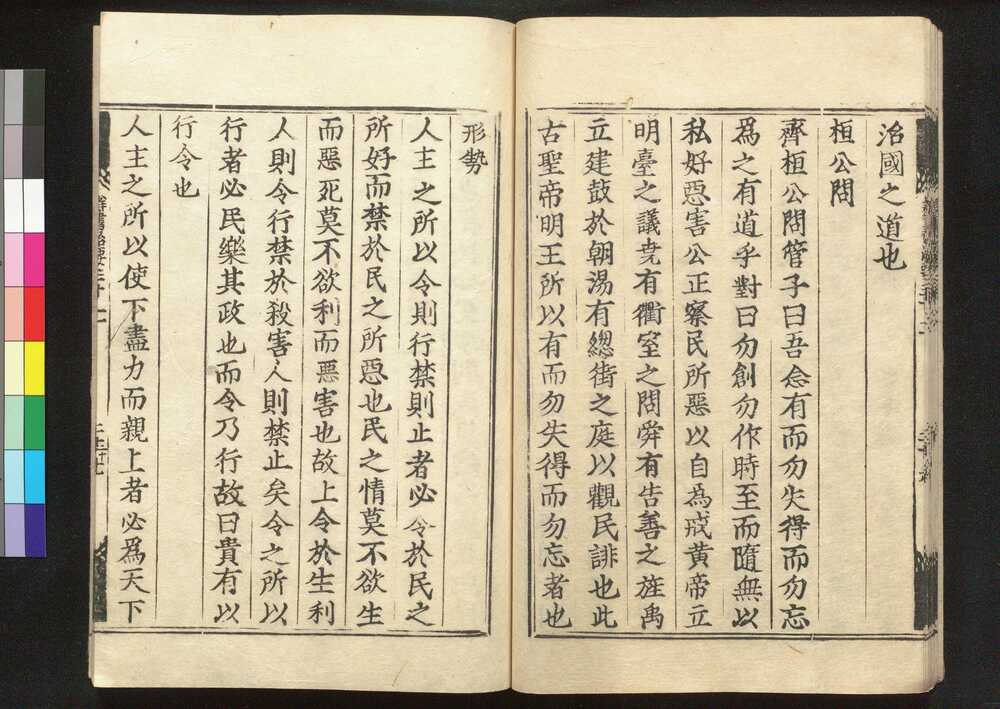 治國之道也
桓公問
齊桓公問管子曰吾念有而勿失得而勿忘
爲之有道乎對曰勿創勿作時至而隨無以
私好惡害公正察民所惡以自為戒黃帝立
明臺之議堯有衢室之問舜有告善之旌禹
立建鼓於朝湯有總街之庭以觀民誹也此
古聖帝明王所以有而勿失得而勿忘者也
形勢
人主之所以令則行禁則止者必令於民之
所好而禁於民之所惡也民之情莫不欲生
而惡死莫不欲利而惡害也故上令於生利
人則令行禁於殺害人則禁止矣令之所以
行者必民樂其政也而令乃行故曰貴有以
行令也
人主之所以使下盡力而親上者必爲天下